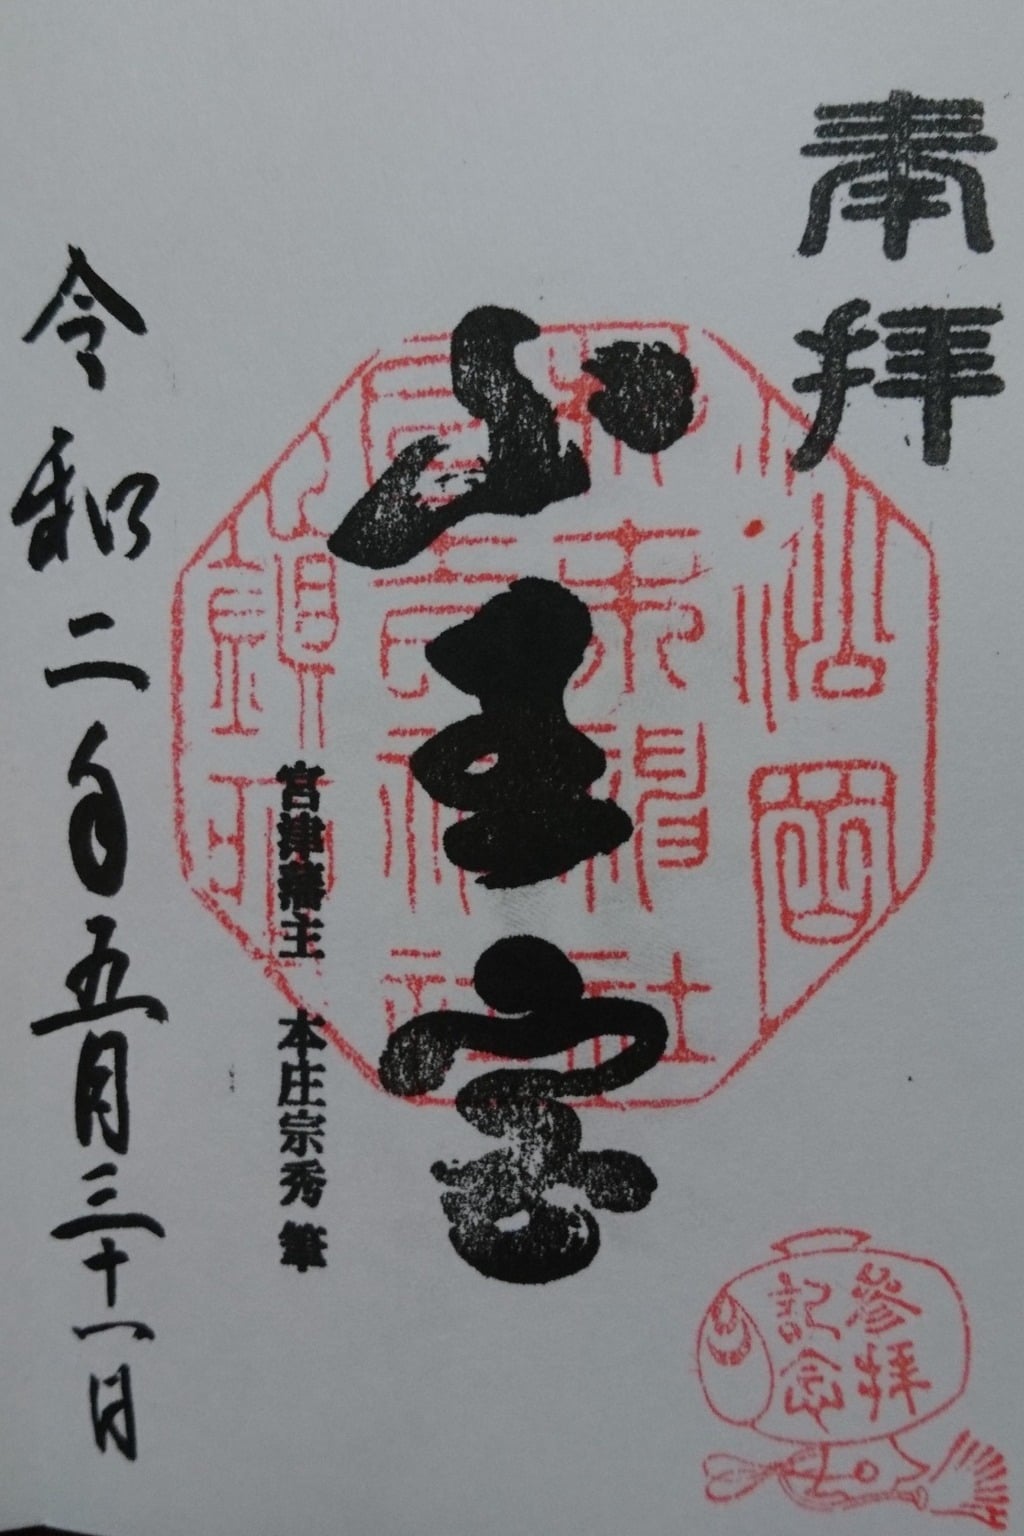 奉拝
山王宮
宮津藩主 本庄宗秀 筆
令和二年五月三十一日
参拝
記念